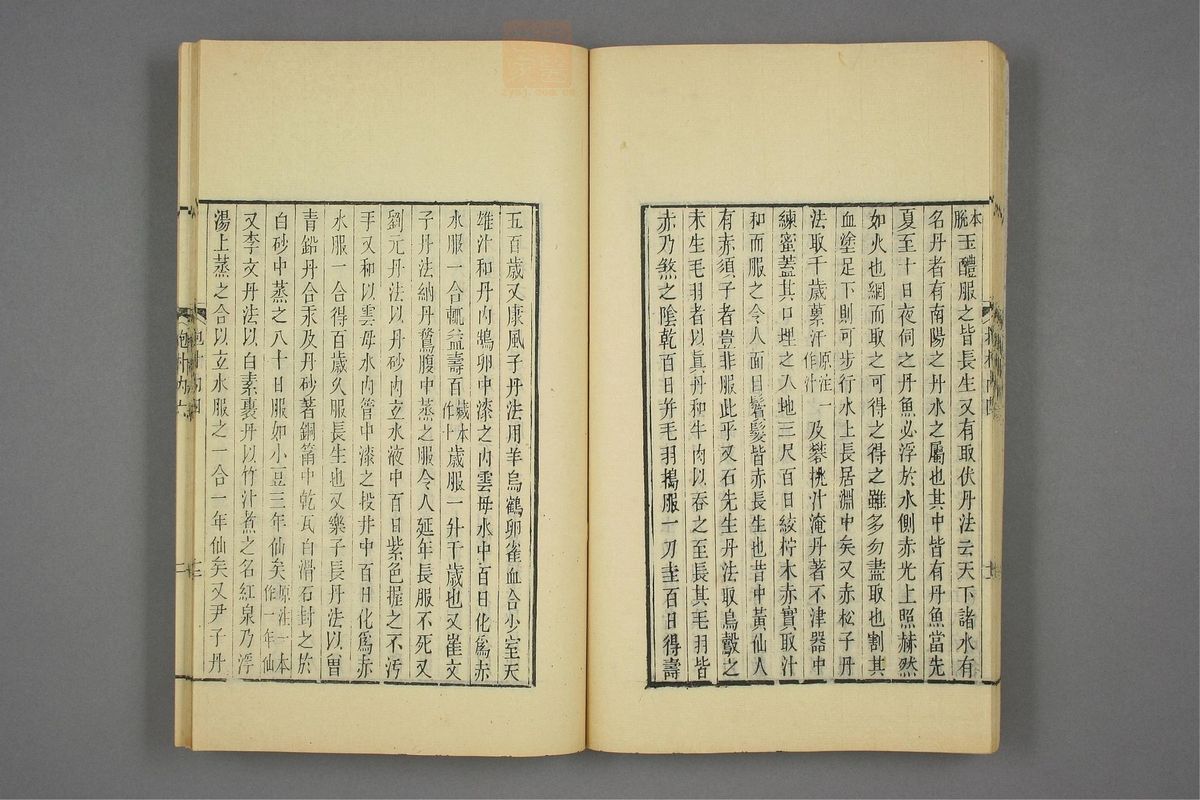 本脱玉醴服之皆長生又有取伏丹法云天下諸水有
名丹者有南陽之丹水之屬也其中皆有丹魚當先
夏至十日夜伺之丹魚必浮於水側赤光上照赫然
如火也網而取之可得之得之雖多勿盡取也割其
血塗足下則可步行水上長居淵中矣又赤松子丹
法取千歲蔂汗原注一作汁及礬桃汁淹丹著不津器中
練蜜蓋其口埋之入地三尺百日絞柠木赤實取汁
和而服之令人面目鬢髮皆赤長生也昔中黃仙人
有赤須子者豈非服此乎又石先生丹法取烏鷇之
未生毛羽者以真丹和牛肉以吞之至長其毛羽皆
赤乃煞之陰乾百日并毛羽搗服一刀圭百日得壽
五百歲又康風子丹法用羊烏鶴卵雀血合少室天
雄汁和丹內鵠卵中漆之內雲母水中百日化爲赤
水服一合輒益壽百藏本作十歲服一升千歲也又崔文
子丹法納丹鶩腹中蒸之服令人延年長服不死又
劉元丹法以丹砂內立水液中百日紫色握之不污
手又和以雲母水內管中漆之投井中百日化爲赤
水服一合得百歲久服長生也又樂子長丹法以曾
青鉛丹合汞及丹砂著銅筩中乾瓦白滑石封之於
白砂中蒸之八十日服如小豆三年仙矣原注一本作一年仙
又李文丹法以白素裹丹以竹汁煮之名紅泉乃浮
湯上蒸之合以立水服之一合一年仙矣又尹子丹